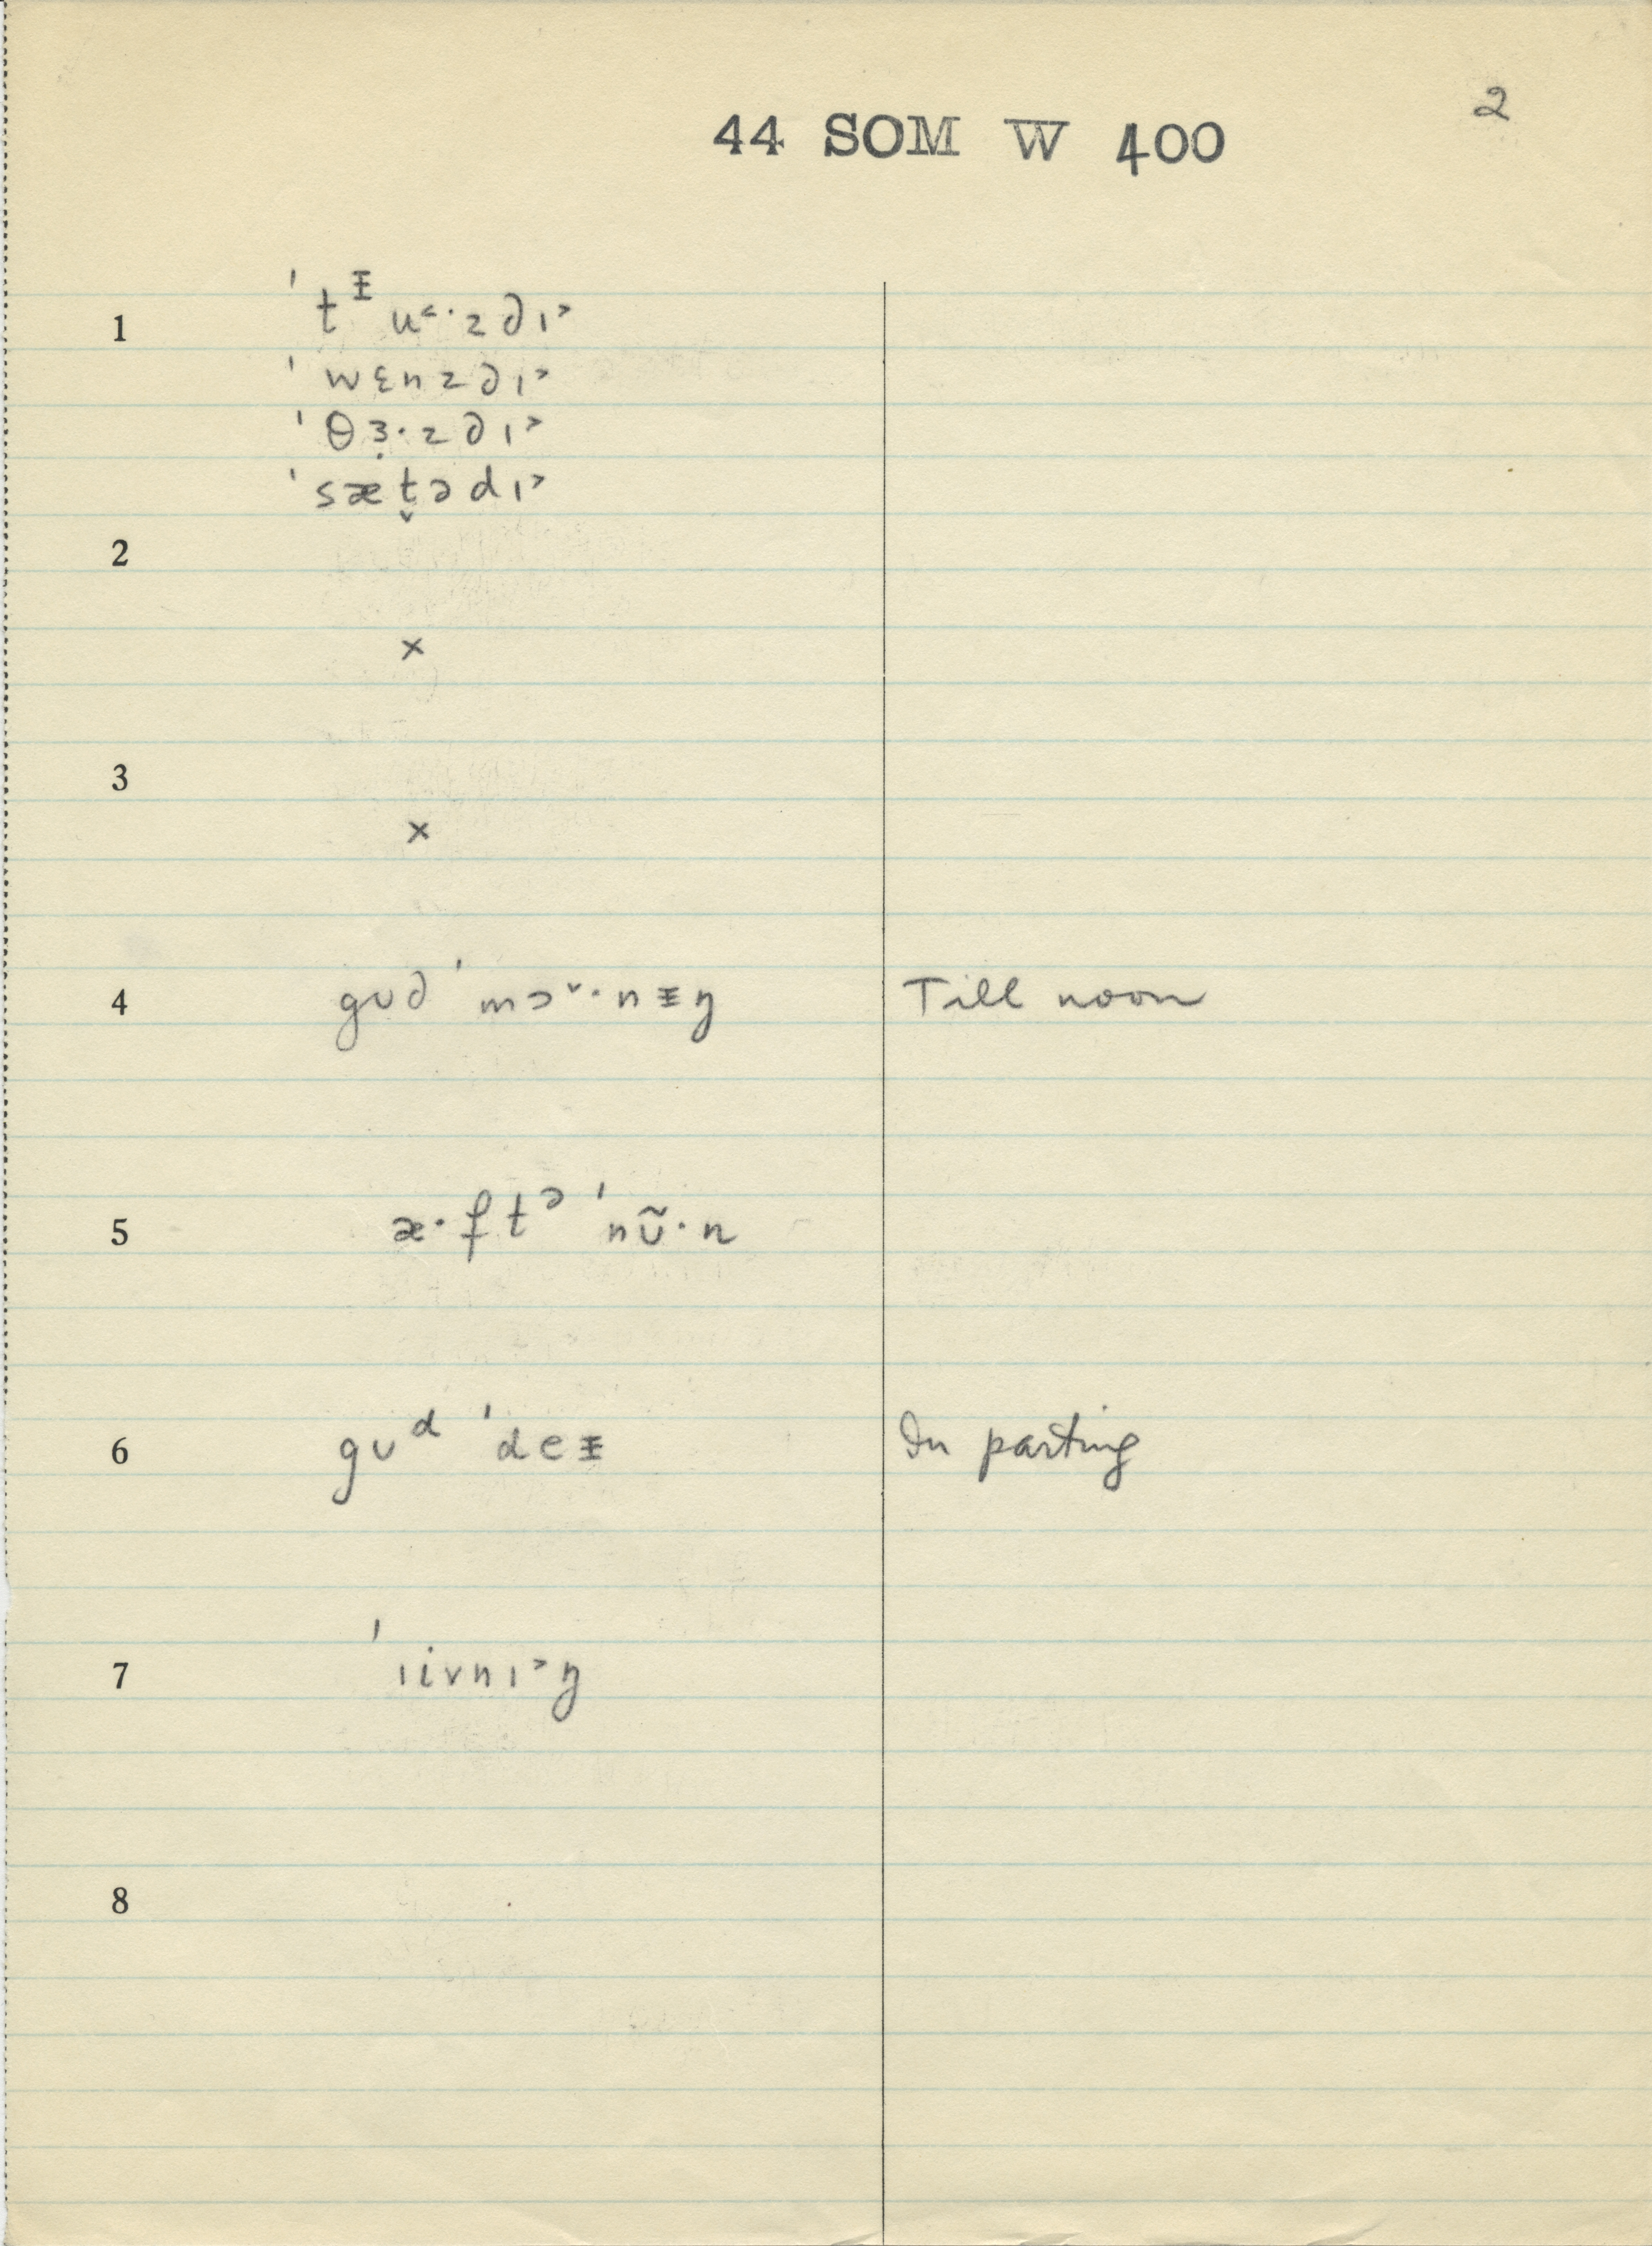 2
44 SOM W 400
1 ˈtᵻu˂·zdɪ˃
ˈwɛnzdɪ˃
ˈθɜ̣·zdɪ˃
ˈsæt̬ədɪ˃
2
×
3
×
4 gʊd ˈmɔ˅·nᵻŋ Till noon
5 æ·ftᵊ ˈnʊ̃·n
6 gʊᵈ ˈdeᵻ In parting
7 ˈɪivnɪ˃ŋ
8